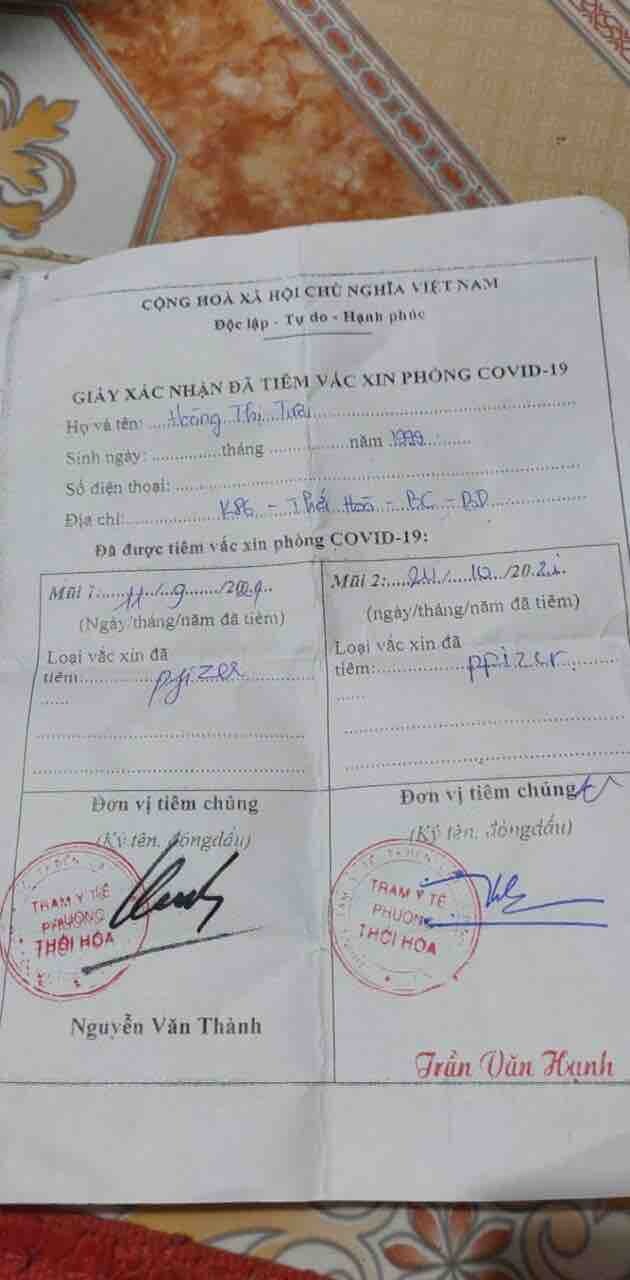 CỘNG HOÀ XÃ HỘI CHỦ NGHĨA VIỆT NAM
Độc lập - Tự do - Hạnh phúc
GIẤY XÁC NHẬN ĐÃ TIÊM VẮC XIN PHÒNG COVID-19
Họ và tên: Hoàng Thị
Sinh ngày: ............... tháng ............... năm 1999
Số điện thoại:
Địa chỉ: - Thới Hoà - BC - BD
Đã được tiêm vắc xin phòng COVID-19:
Mũi 1: 11/9/20
(Ngày/tháng/năm đã tiêm)
Loại vắc xin đã
tiêm: pfizer
Mũi 2: /10/2021
(ngày/tháng/năm đã tiêm)
Loại vắc xin đã
tiêm: ppizer
Đơn vị tiêm chủng
(Ký tên, đóng dấu)
TRẠM Y TẾ
PHƯỜNG
THỚI HÒA
Nguyễn Văn Thành
Đơn vị tiêm chủng
(Ký tên, đóng dấu)
TRẠM Y TẾ
PHƯỜNG
THỚI HÒA
Trần Văn Hạnh